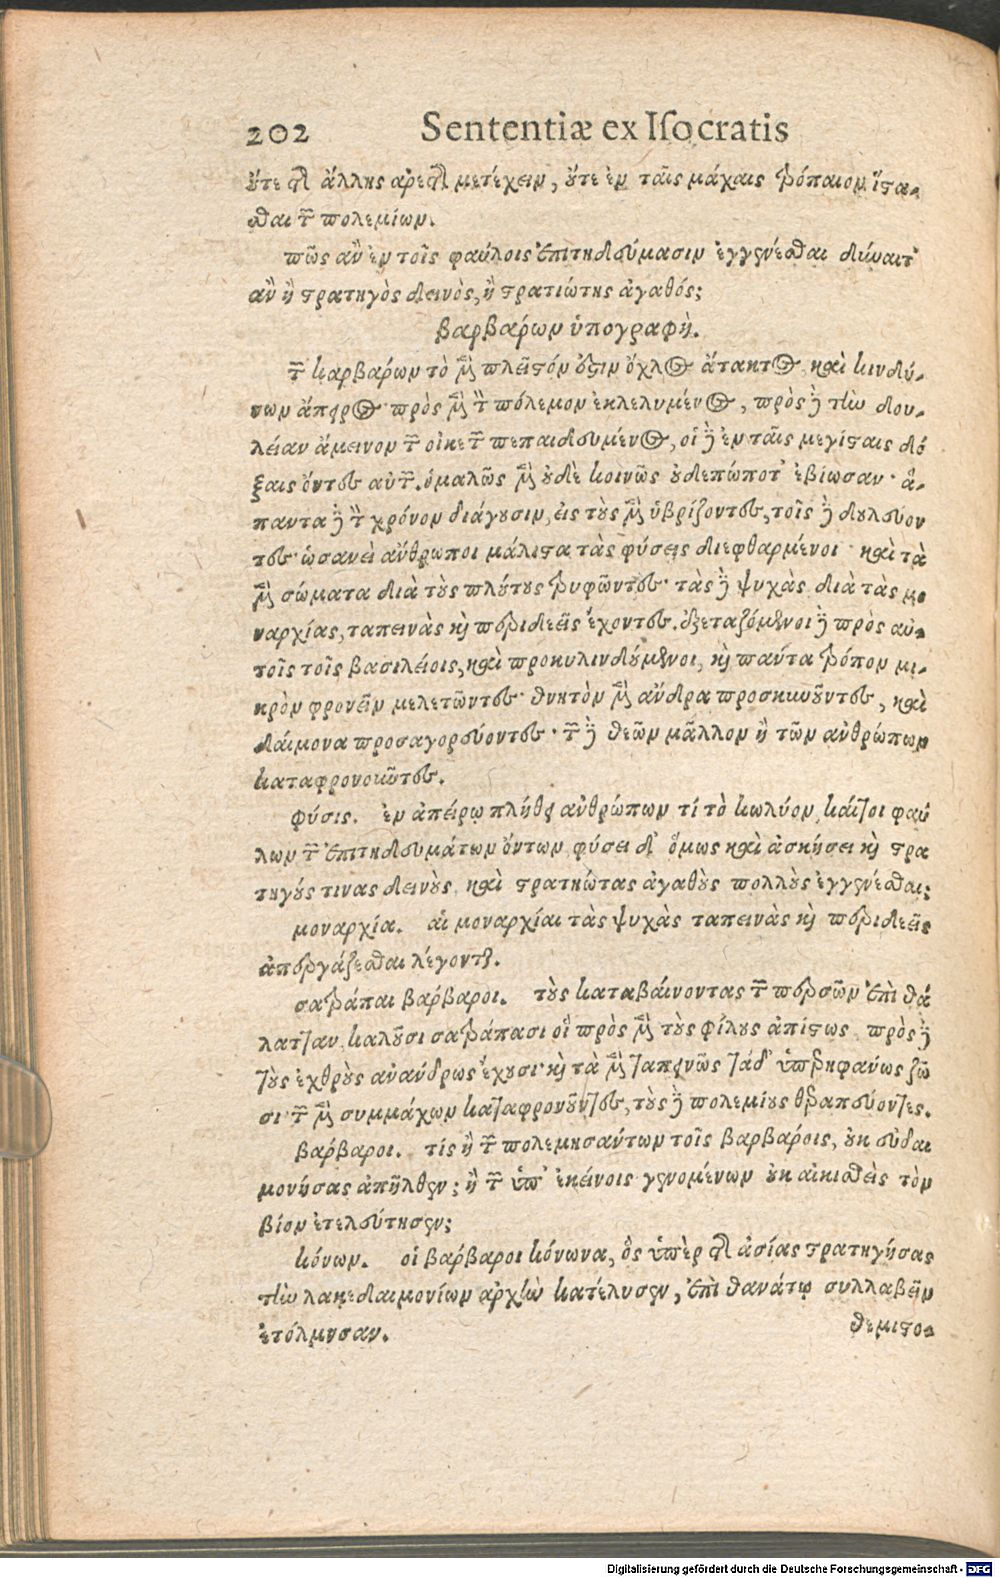 202 Sententiæ ex Iſocratis
ὔτε τῆς ἄλλης ἀρετῆς μετέχειν, ὔτε ἐν ταῖς μάχαις τρόπαιον ἵστα-
σθαι τῶν πολεμίων.
πῶς ἂν ἐν τοῖς φαύλοις ἐπιτηδεύμασιν ἐγγενέσθαι δύναιτ᾽
ἂν ἢ στρατηγὸς δεινὸς, ἢ στρατιώτης ἀγαθός;
βαρβάρων ὑπογραφή.
τῶν βαρβάρων τὸ μὲν πλεῖστόν ὅζιν ὄχλος ἄτακτος, καὶ κινδύ-
νων ἄπειρος· πρὸς μὲν τὸν πόλεμον ἐκλελυμένος, πρὸς δὲ τὴν δου-
λείαν ἄμεινον τῶν οἰκετῶν πεπαιδευμένος, οἱ δὲ ἐν ταῖς μεγίσταις δό
ξαις ὄντες αὐτῶν. ὁμαλῶς μὲν ὐδὲ κοινῶς ὐδεπώποτ᾽ ἐβίωσαν· ἅ-
παντα δὲ τὸν χρόνον διάγουσιν, εἰς τοὺς μὲν ὑβρίζοντες, τοῖς δὲ δουλεύον
τες· ὡσανεὶ ἄνθρωποι μάλιστα τὰς φύσεις διεφθαρμένοι· καὶ τὰ
μὲν σώματα διὰ τοὺς πλούτους τρυφῶντες· τὰς δὲ ψυχὰς διὰ τὰς μο
ναρχίας, ταπεινὰς καὶ περιδεεῖς ἔχοντες. ἐξεταζόμενοι δὲ πρὸς αὐ-
τοῖς τοῖς βασιλείοις, καὶ προκυλινδούμενοι, καὶ πάντα τρόπον μι-
κρὸν φρονεῖν μελετῶντες· θνητὸν μὲν ἄνδρα προσκυνοῦντες, καὶ
δαίμονα προσαγορεύοντες· τῶν δὲ θεῶν μᾶλλον ἢ τῶν ἀνθρώπων
καταφρονοῦντες.
φύσις. ἐν ἀπείρῳ πλήθει ἀνθρώπων τί τὸ κωλύον, καίτοι φαύ
λων τῶν ἐπιτηδευμάτων ὄντων, φύσει δ᾽ ὅμως καὶ ἀσκήσει καὶ στρα
τηγούς τινας δεινοὺς, καὶ στρατιώτας ἀγαθοὺς πολλοὺς ἐγγενέσθαι;
μοναρχία. αἱ μοναρχίαι τὰς ψυχὰς ταπεινὰς καὶ περιδεεῖς
ἀπεργάζεσθαι λέγονται.
σατράπαι βάρβαροι. τοὺς καταβαίνοντας τῶν περσῶν ἐπὶ θά
λατταν, καλοῦσι σατράπας· οἳ πρὸς μὲν τοὺς φίλους ἀπίστως, πρὸς δὲ
τοὺς ἐχθροὺς ἀνάνδρως ἔχουσι· καὶ τὰ μὲν ταπεινῶς τάδ᾽ ὑπερηφάνως ζῶ
σι· τῶν μὲν συμμάχων καταφρονοῦντες, τοὺς δὲ πολεμίους θεραπεύοντες.
βάρβαροι. τίς ἢ τῶν πολεμησάντων τοῖς βαρβάροις, ὐκ εὐδαι
μονήσας ἀπῆλθεν; ἢ τῶν ὑπ᾽ ἐκείνοις γενομένων ὐκ αἰκισθεὶς τὸν
βίον ἐτελεύτησεν;
κόνων. οἱ βάρβαροι κόνωνα, ὃς ὑπὲρ τῆς ἀσίας στρατηγήσας
τὴν λακεδαιμονίων ἀρχὴν κατέλυσεν, ἐπὶ θανάτῳ συλλαβεῖν
ἐτόλμησαν.
θεμιστο-
Digitalisierung gefördert durch die Deutsche Forschungsgemeinschaft - DFG